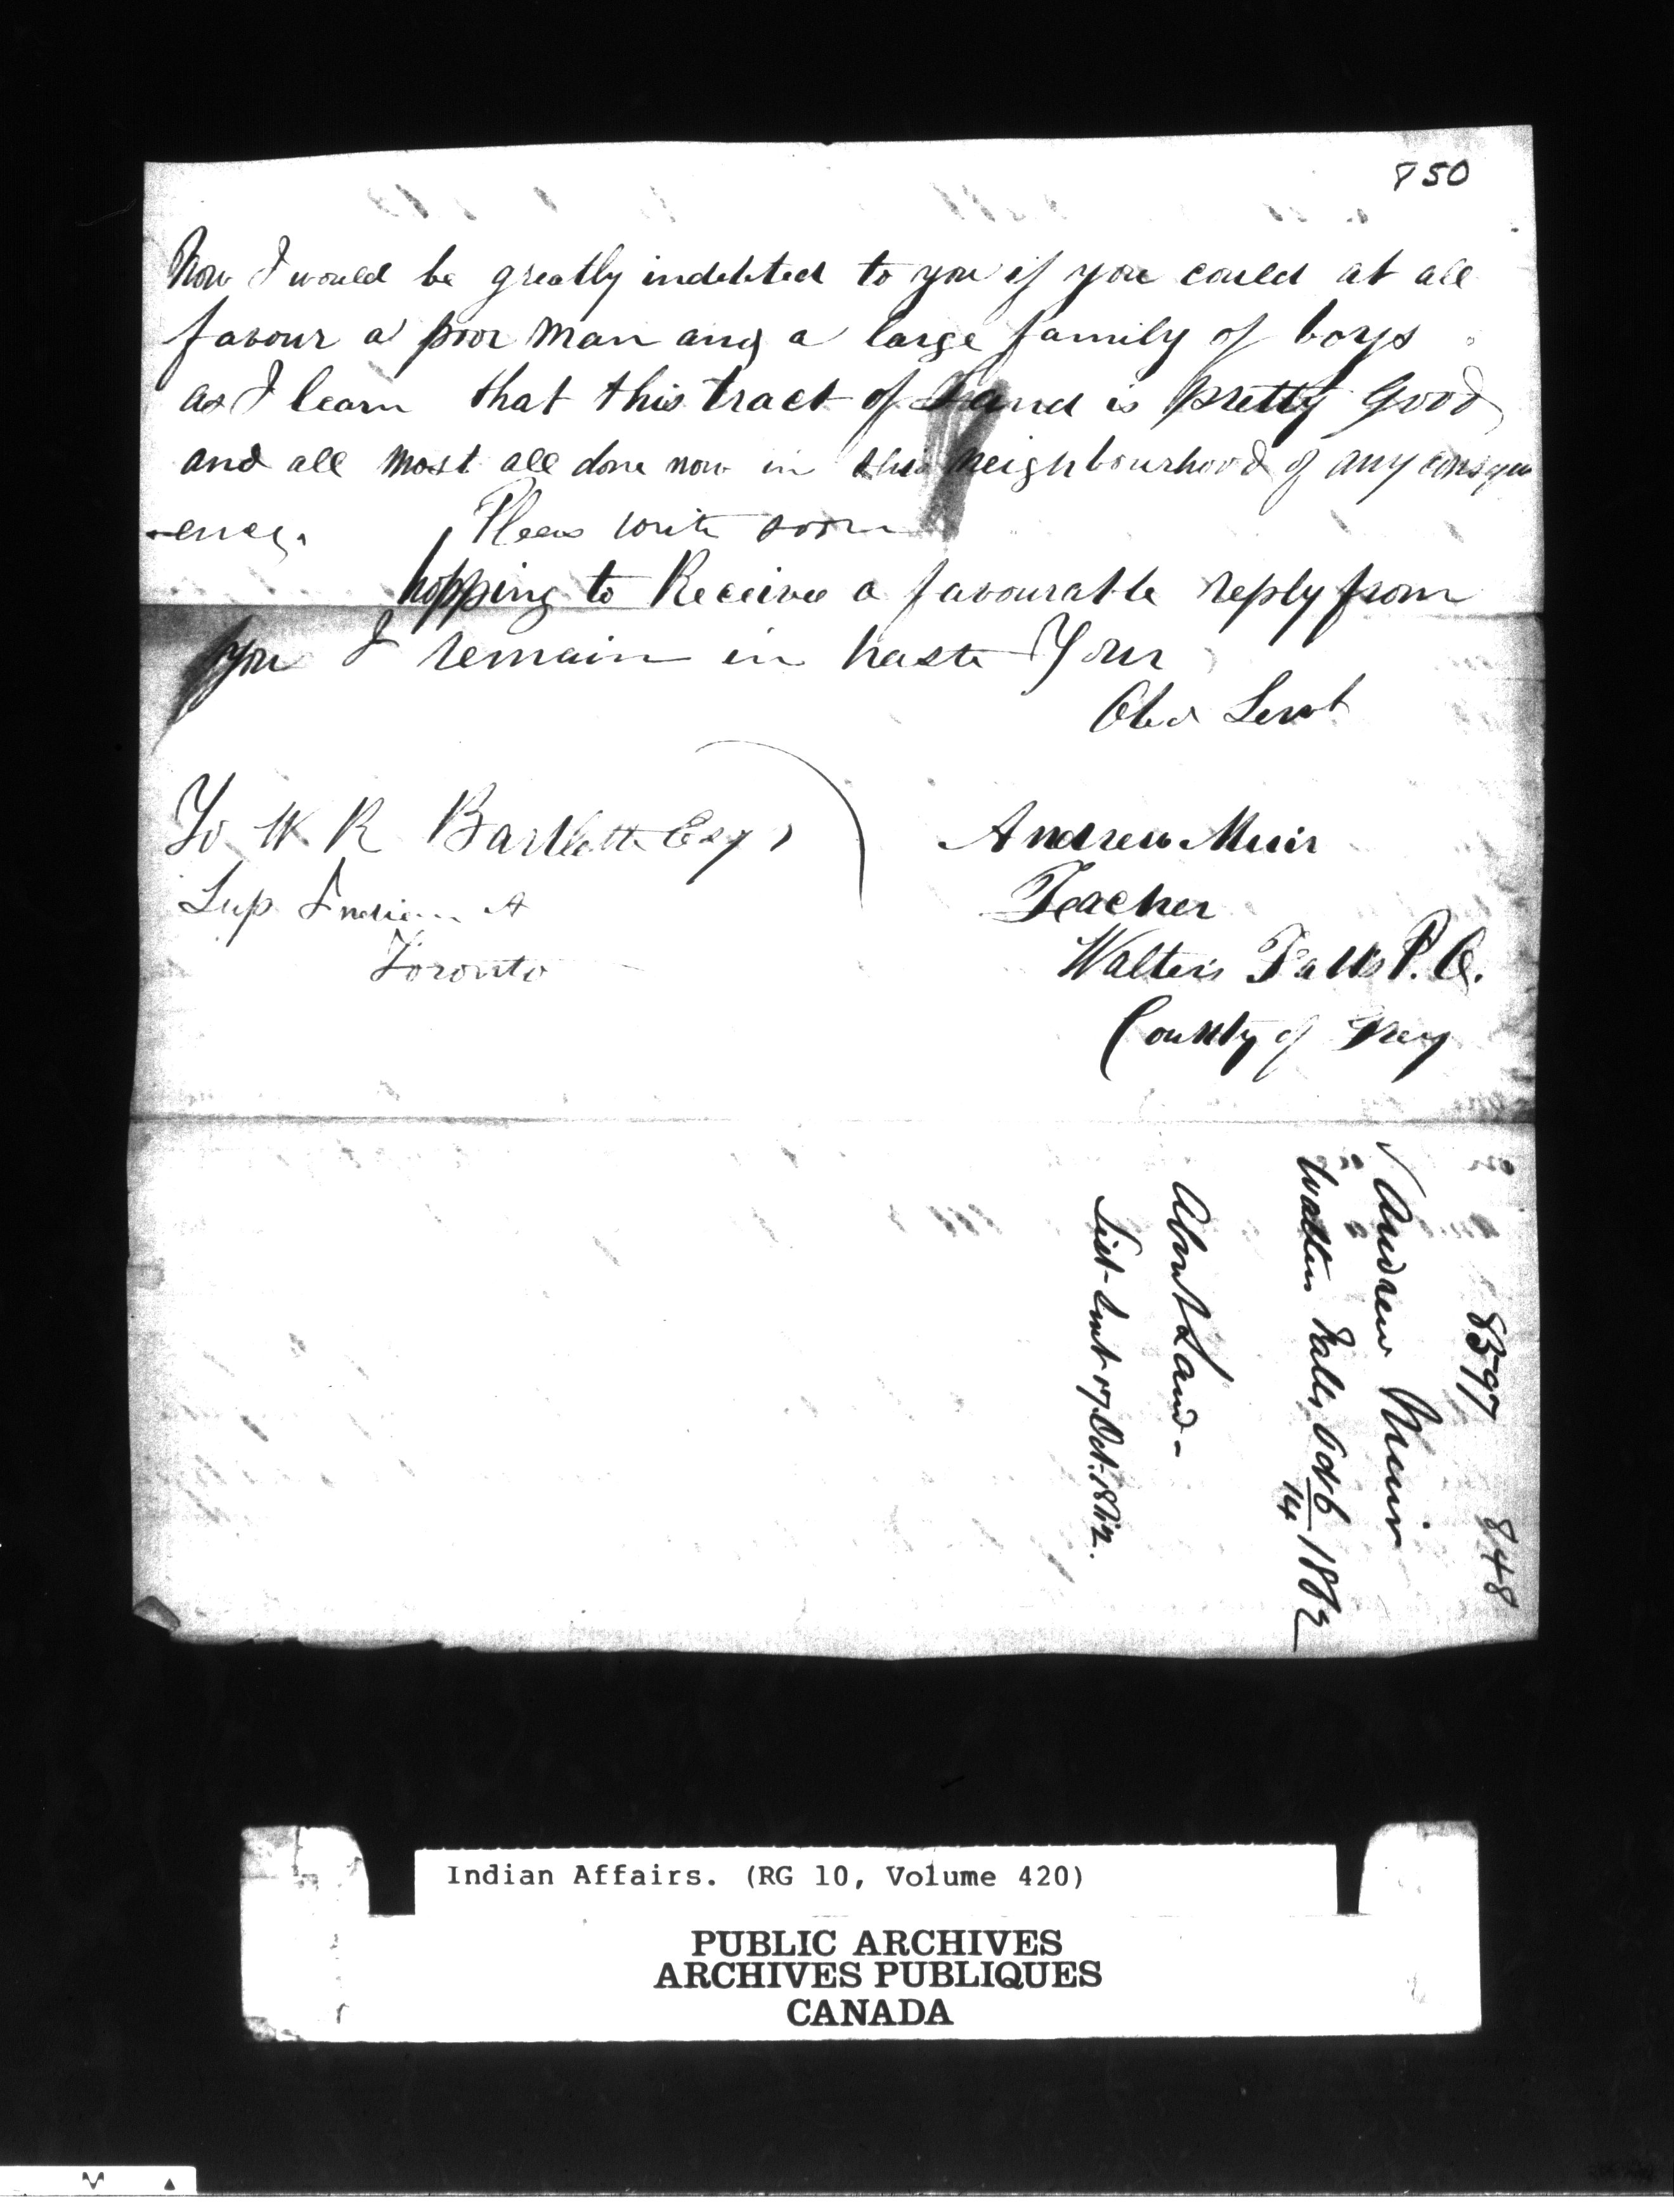 850
Now I would be greatly indebted to you if you could at all
favour a poor man and a large family of boys
as I learn that this tract of Land is pretty good
and all most all done now in this neighbourhood of any consequ
-ency. Pleas write soon
hopping to Receive a favourable reply from
you I remain in haste Your
Obed Servt
To W R Bartlett Esq,
Sup Indian A
Toronto
Andrew Muir
Teacher
Walters Falls P.O.
County of Grey
8597
848
Andrew Muir
Walters Falls, Oct 6/14 1862
About Land -
List sent 17 Oct. 1862.
Indian Affairs. (RG 10, Volume 420)
PUBLIC ARCHIVES
ARCHIVES PUBLIQUES
CANADA